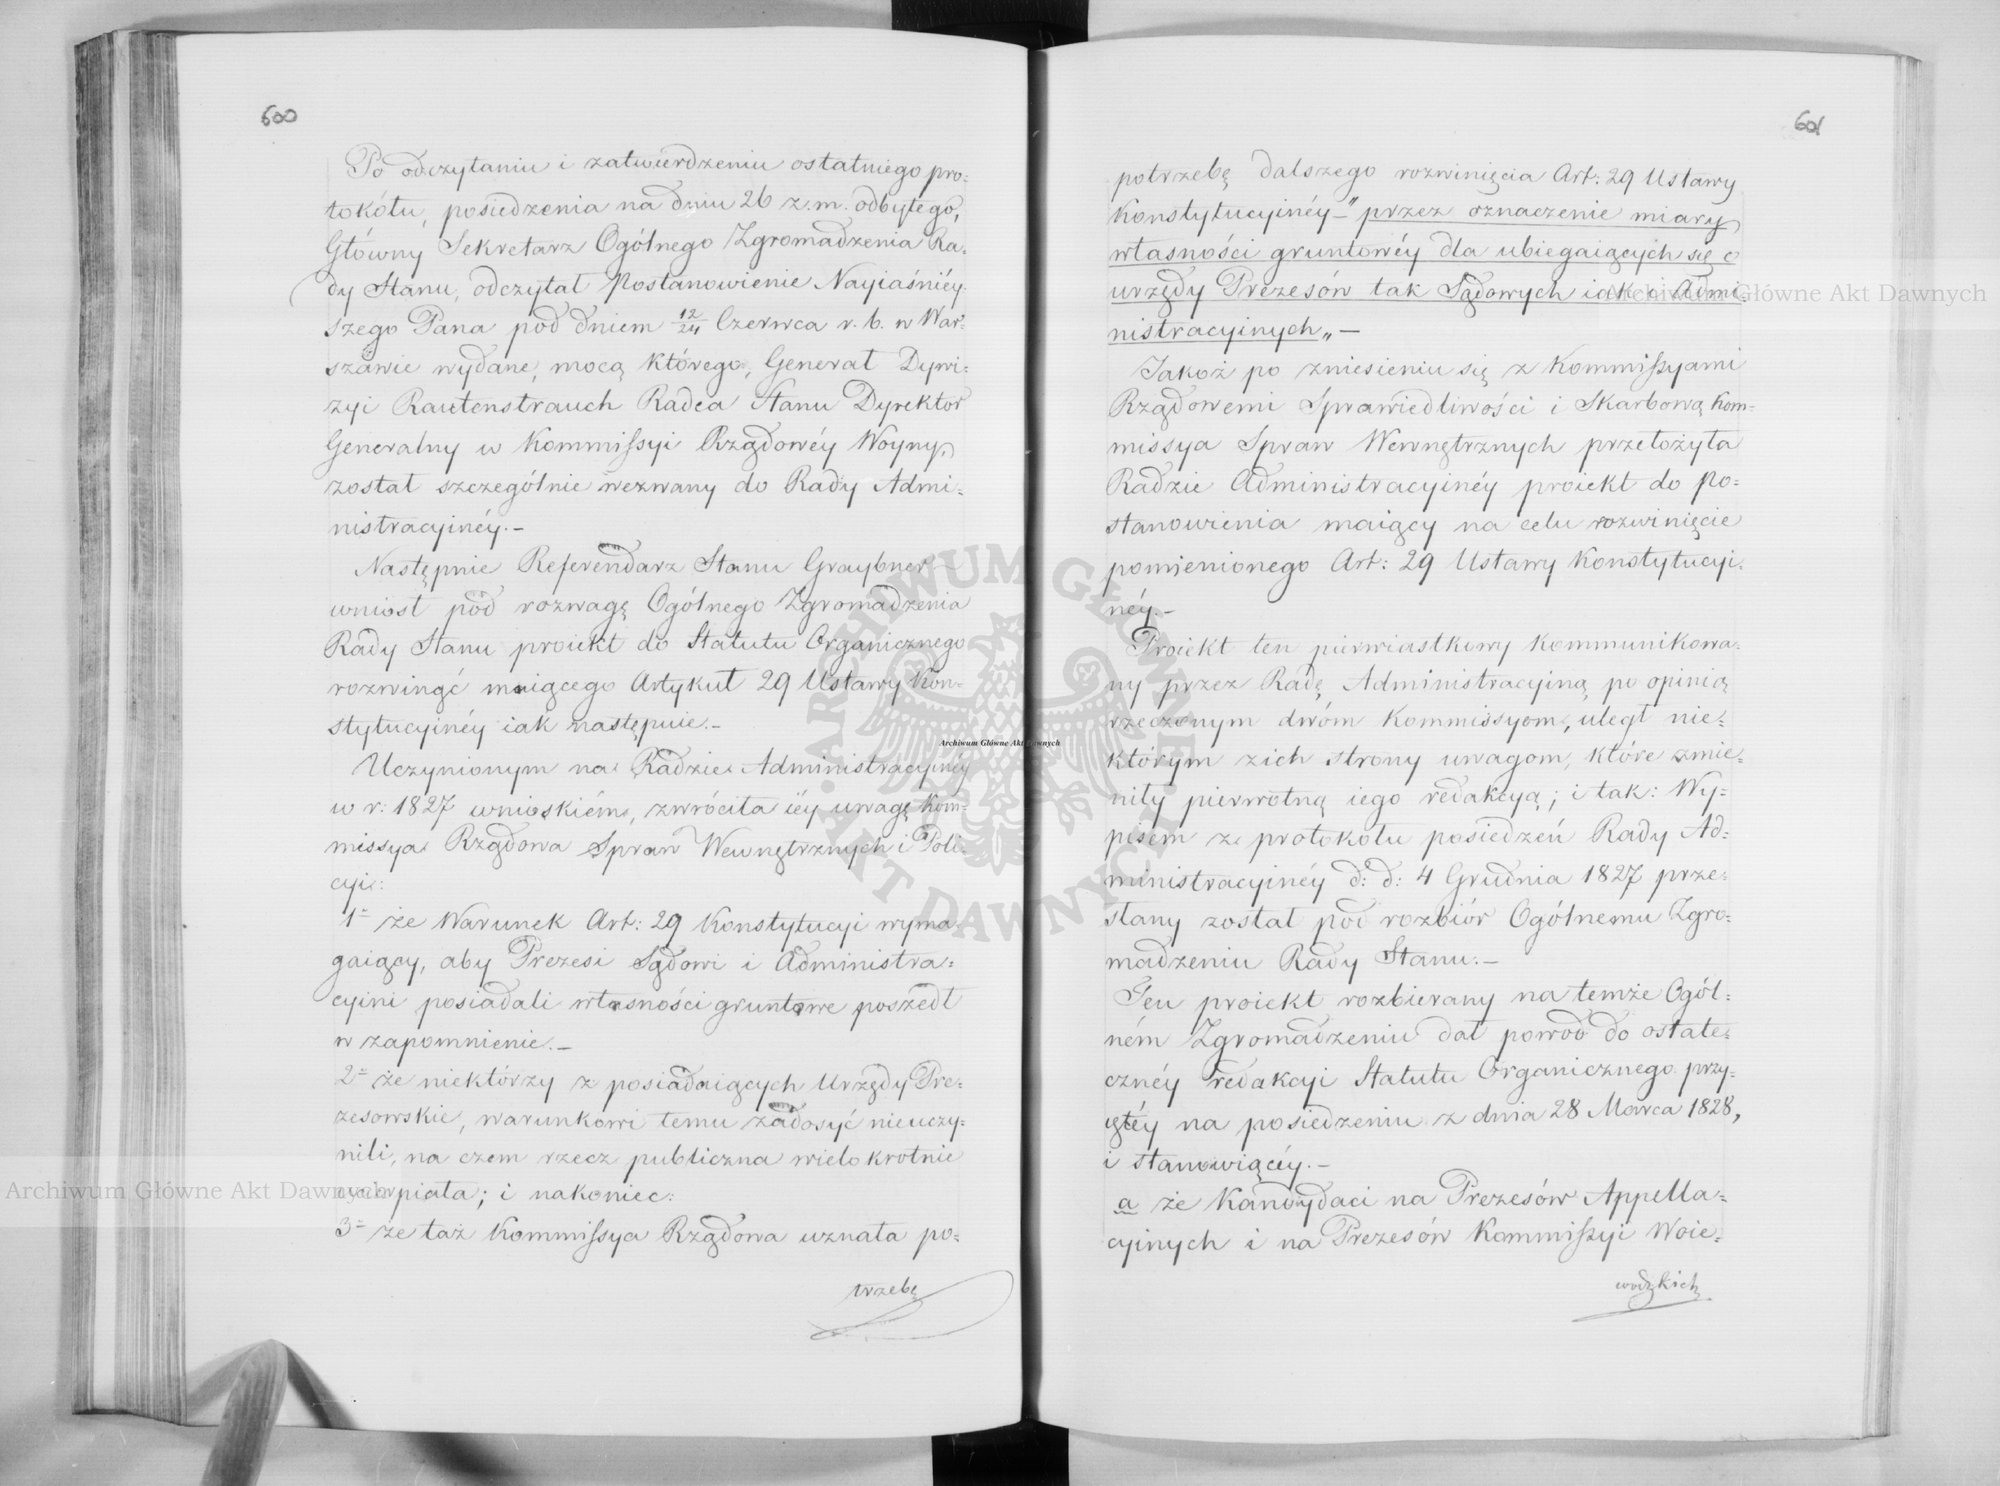 600
Po odczytaniu i zatwierdzeniu ostatniego pro-
tokółu, posiedzenia na dniu 26 z.m. odbytego,
Główny Sekretarz Ogólnego Zgromadzenia Ra-
dy Stanu, odczytał Postanowienie Nayiaśniéy-
szego Pana pod dniem 12/24 Czerwca r. b. w War-
szawie wydane, mocą którego, Generał Dywi-
zyi Rautenstrauch Radca Stanu Dyrektor
Generalny w Kommissyi Rządowéy Woyny,
został szczególnie wezwany do Rady Admi-
nistracyinéy.-
Następnie Referendarz Stanu Graybner
wniosł pod rozwagę Ogólnego Zgromadzenia
Rady Stanu proiekt do Statutu Organicznego
rozwinąć maiącego Artykuł 29 Ustawy Kon-
stytucyinéy iak następuie.-
Uczynionym na Radzie Administracyinéy
w r: 1827 wnioskiém, zwróciła iéy uwagę Kom-
missya Rządowa Spraw Wewnętrznych i Poli-
cyi:
1= że Warunek Art: 29 Konstytucyi wyma-
gaiący, aby Prezesi Sądowi i Administra-
cyini posiadali własności gruntowe poszedł
w zapomnienie.-
2= że niektórzy z posiadaiących Urzędy Pre-
zesowskie, warunkowi temu zadosyć nieuczy-
nili, na czem rzecz publiczna wielokrotnie
ucierpiała; i nakoniec:
3= że taż Kommissya Rządowa uznała po-
trzebę
601
potrzebę dalszego rozwinięcia Art: 29 Ustawy
Konstytucyinéy-"przez oznaczenie miary
własności gruntowéy dla ubiegaiących się o
urzędy Prezesów tak Sądowych iak i Admi-
nistracyinych„-
Jakoż po zniesieniu się z Kommissyami
Rządowemi Sprawiedliwości i Skarbową Kom-
missya Spraw Wewnętrznych przełożyła
Radzie Administracyinéy proiekt do Po-
stanowienia maiący na celu rozwinięcie
pomienionego Art: 29 Ustawy Konstytucyi-
néy.-
Proiekt ten pierwiastkowy kommunikowa-
ny przez Radę Administracyiną po opinią
rzeczonym dwóm Kommissyom, uległ nie-
którym zich strony uwagom, które zmie-
niły pierwotną iego redakcyą; i tak: Wy-
pisem z protokołu posiedzeń Rady Ad-
ministracyinéy d: d: 4 Grudnia 1827 prze-
słany został pod rozbiór Ogólnemu Zgro-
madzeniu Rady Stanu.-
Ten proiekt rozbierany na temże Ogól-
ném Zgromadzeniu dał powod do ostate-
cznéy redakcyi Statutu Organicznego przy-
iętéy na posiedzeniu z dnia 28 Marca 1828,
i stanowiącéy.-
a że Kandydaci na Prezesów Appella-
cyinych i na Prezesów Kommissyi Woie-
wodzkich
Archiwum Główne Akt Dawnych
Archiwum Główne Akt Dawnych
Archiwum Główne Akt Dawnych
ARCHIWUM GŁÓWNE
AKT DAWNYCH